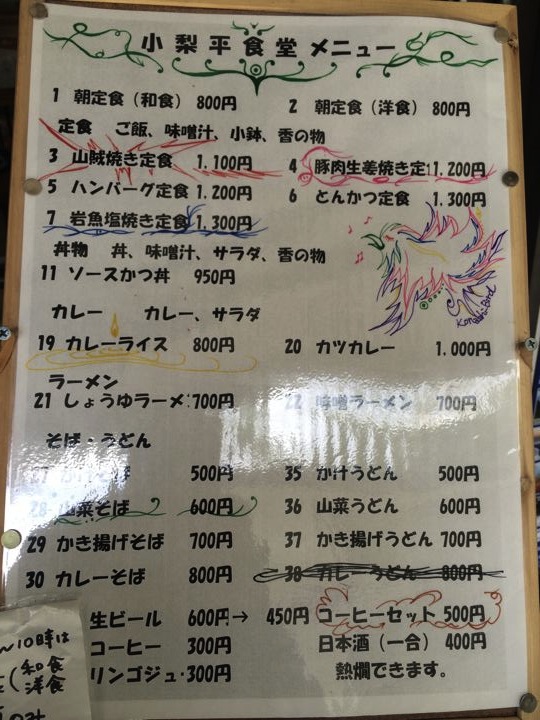 小梨平食堂メニュー
1 朝定食（和食） 800円 2 朝定食（洋食） 800円
定食 ご飯、味噌汁、小鉢、香の物
3 山賊焼き定食 1.100円 4 豚肉生姜焼き定 1.200円
5 ハンバーグ定食 1.200円 6 とんかつ定食 1.300円
7 岩魚塩焼き定食 1.300円
丼物 丼、味噌汁、サラダ、香の物
11 ソースかつ丼 950円
カレー カレー、サラダ
19 カレーライス 800円 20 カツカレー 1.000円
ラーメン
21 しょうゆラーメ 700円 22 味噌ラーメン 700円
そば・うどん
27 500円 35 かけうどん 500円
28 山菜そば 600円 36 山菜うどん 600円
29 かき揚げそば 700円 37 かき揚げうどん 700円
30 カレーそば 800円 38 カレーうどん 800円
生ビール 600円→ 450円 コーヒーセット 500円
コーヒー 300円 日本酒（一合） 400円
リンゴジュ 300円 熱燗できます。
～10時は
和食
洋食